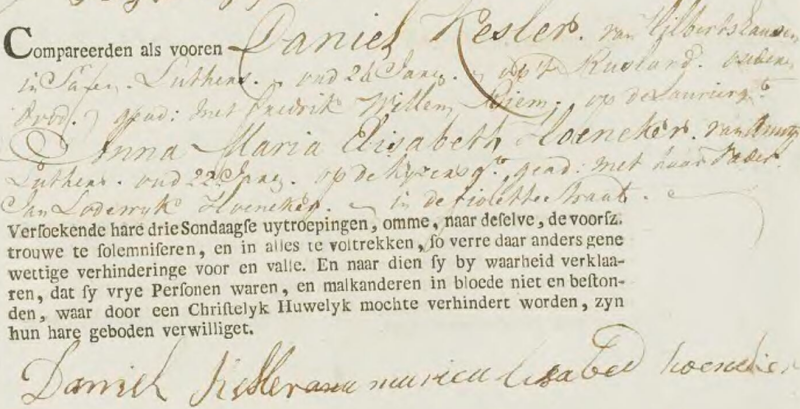 Compareerden als vooren Daniel Kesler. van Hilbertshausen
in Saxen. Luthers. oud 26 Jaren. op 't Rusland. ouders
dood. gead: met Fredrik Willem Riem, op de Laurierg:t
& Anna Maria Elisabeth Hoeneker. van
Luthers. oud 22 Jaren. op de Kyzersg:t, gead: met haar Vader
Jan Lodewyk Hoeneker. in de Violette straat.
Versoekende hare drie Sondaagse uytroepingen, omme, naar deselve, de voorsz.
trouwe te solemniseren, en in alles te voltrekken, so verre daar anders gene
wettige verhinderinge voor en valle. En naar dien sy by waarheid verklaa-
ren, dat sy vrye Personen waren, en malkanderen in bloede niet en beston-
den, waar door een Christelyk Huwelyk mochte verhindert worden, zyn
hun hare geboden verwilliget.
Daniel Kesler anna maria lisabed hoeneker